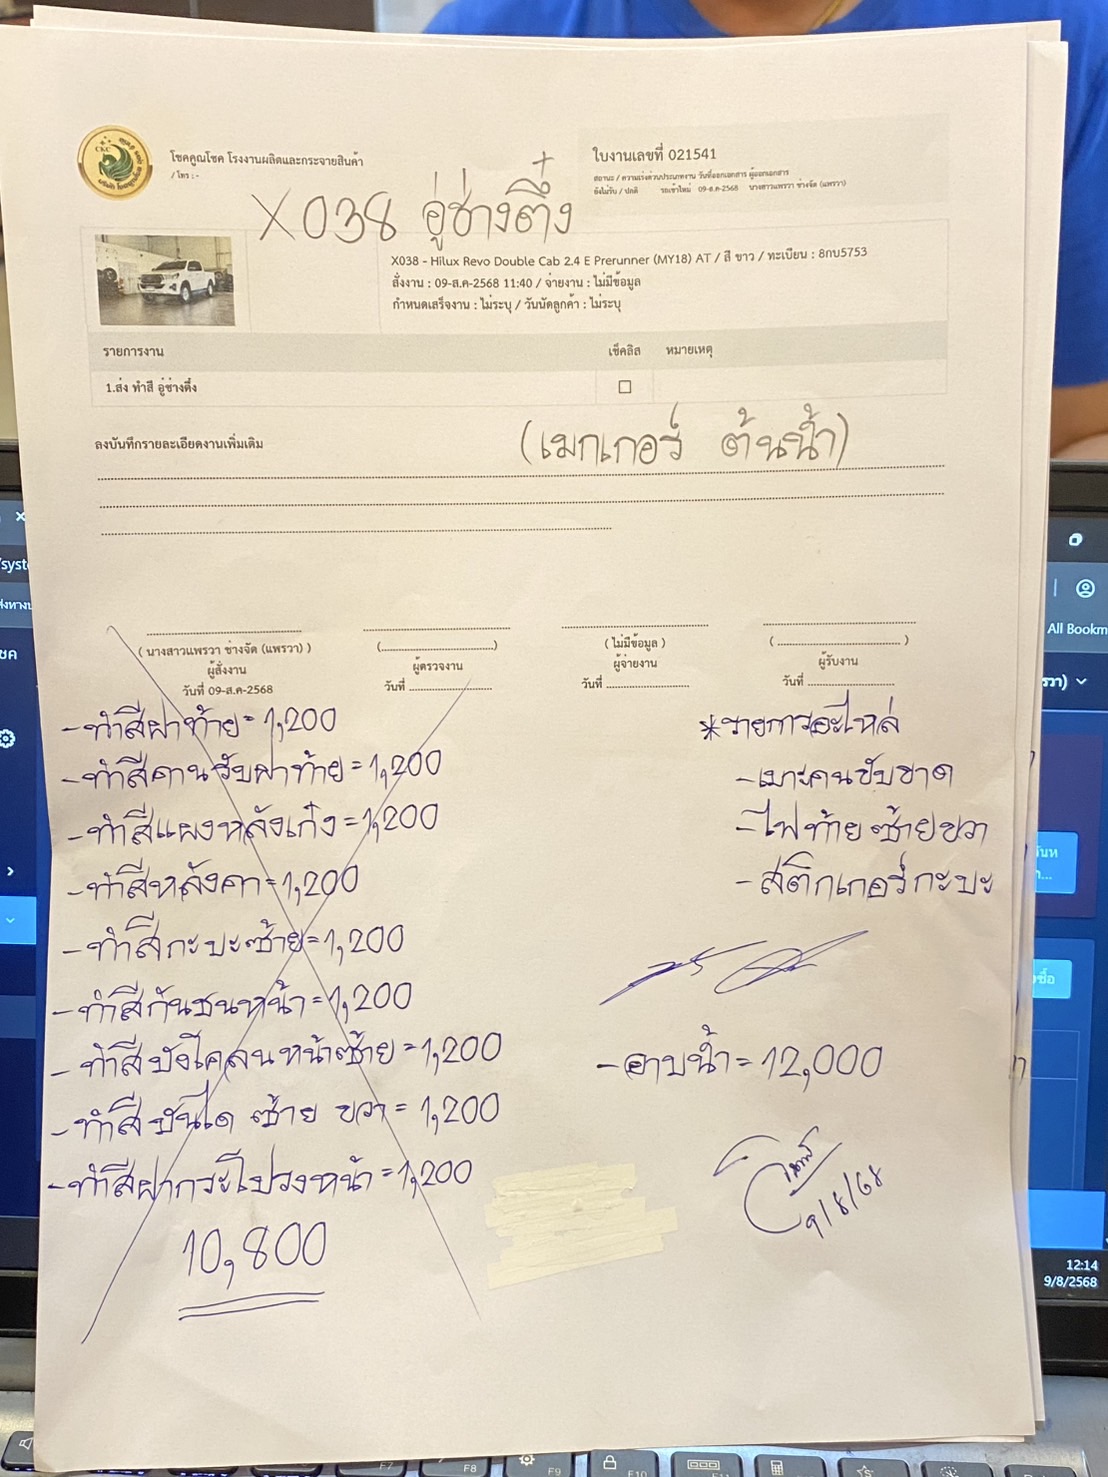 โชคคูณโชค โรงงานผลิตและกระจายสินค้า
/ โทร : -
ใบงานเลขที่ 021541
สถานะ / ความเร่งด่วนประเภทงาน วันที่ออกเอกสาร ผู้ออกเอกสาร
ยังไม่รับ / ปกติ รถเข้าใหม่ 09-ส.ค-2568 นางสาวแพรวา ช่างจัด (แพรวา)
X038 อู่ช่างตึ๋ง
X038 - Hilux Revo Double Cab 2.4 E Prerunner (MY18) AT / สี ขาว / ทะเบียน : 8กบ5753
สั่งงาน : 09-ส.ค-2568 11:40 / จ่ายงาน : ไม่มีข้อมูล
กำหนดเสร็จงาน : ไม่ระบุ / วันนัดลูกค้า : ไม่ระบุ
รายการงาน เช็คลิส หมายเหตุ
1.ส่ง ทำสี อู่ช่างตึ๋ง
ลงบันทึกรายละเอียดงานเพิ่มเติม
(เมกเกอร์ ต้นน้ำ)
( นางสาวแพรวา ช่างจัด (แพรวา) )
ผู้สั่งงาน
วันที่ 09-ส.ค-2568
(................................)
ผู้ตรวจงาน
วันที่ ........................
( ไม่มีข้อมูล )
ผู้จ่ายงาน
วันที่ ........................
( ................................ )
ผู้รับงาน
วันที่ ........................
-ทำสีฝาท้าย=1,200
-ทำสีคานรับฝาท้าย=1,200
-ทำสีแผงหลังเก๋ง=1,200
-ทำสีหลังคา=1,200
-ทำสีกะบะซ้าย=1,200
-ทำสีกันชนหน้า=1,200
-ทำสีบังโคลนหน้าซ้าย=1,200
-ทำสีบันได ซ้าย ขวา=1,200
-ทำสีฝากระโปรงหน้า=1,200
10,800
*รายการอะไหล่
-เบาะคนขับขาด
-ไฟท้ายซ้ายขวา
-สติกเกอร์กะบะ
-อาบน้ำ=12,000
9/8/68
All Bookm
12:14
9/8/2568